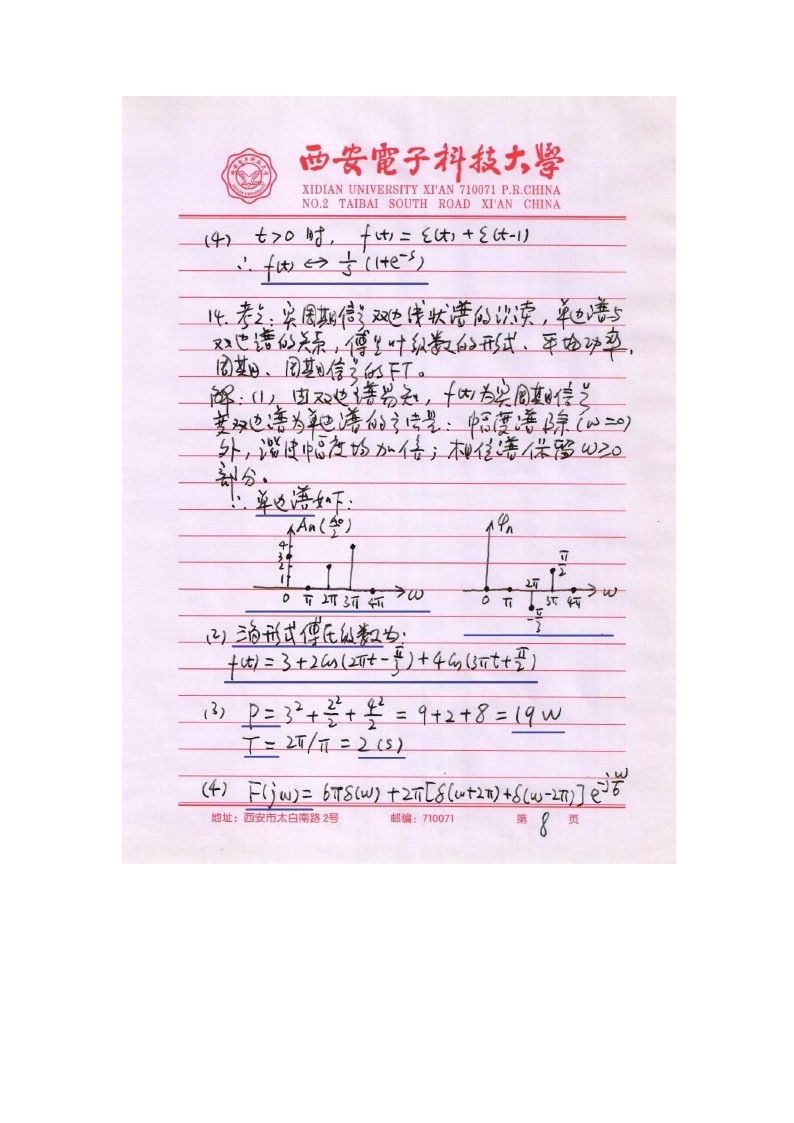 西安電子科技大學
XIDIAN UNIVERSITY XI'AN 710071 P.R.CHINA
NO.2 TAIBAI SOUTH ROAD XI'AN CHINA
(4) t>0 时, f(t) = ε(t) + ε(t-1)
∴ f(t) ↔ 1/s (1+e^{-s})
14. 考点: 实周期信号双边线状谱的识读, 单边谱与
双边谱的关系, 傅里叶级数的形式、平均功率,
周期、周期信号的FT。
解: (1) 由双边谱易知, f(t)为实周期信号
变双边谱为单边谱的方法是: 幅度谱除(ω=0)
外, 谐波幅度均加倍; 相位谱保留ω≥0
部分。
∴ 单边谱如下:
An (A0/2) 4 3 2 1 0 π 2π 3π 4π ω
φn 0 π 2π 3π 4π ω π/2 -π/3
(2) 三角形式傅氏级数为:
f(t) = 3 + 2cos(2πt - π/3) + 4cos(3πt + π/2)
(3) P = 3² + 2²/2 + 4²/2 = 9+2+8 = 19 W
T = 2π/π = 2 (s)
(4) F(jω) = 6πδ(ω) + 2π[δ(ω+2π)+δ(ω-2π)] e^{-jω/6}
地址: 西安市太白南路2号 邮编: 710071 第 8 页